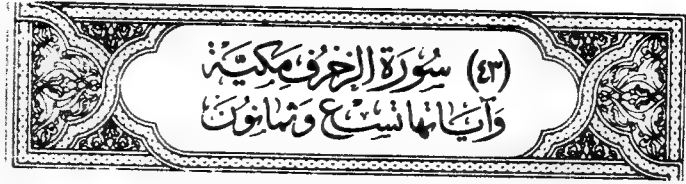 (٤٣) سُورَة الزخرف مَكيَّة
وَآيَاتها تسْع وَثمانونَ